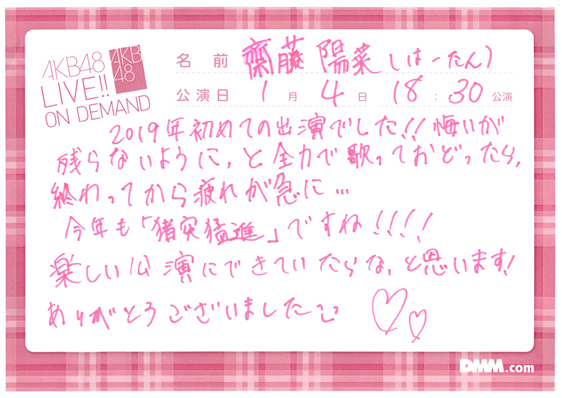 AKB48
LIVE!!
ON DEMAND
AKB
48
名前 齋藤 陽菜(はーたん)
公演日 1月4日 18:30公演
2019年初めての出演でした!!悔いが
残らないように、と全力で歌っておどったら、
終わってから疲れが急に…
今年も「猪突猛進」ですね!!!!
楽しい公演にできていたらな、と思います!
ありがとうございました
DMM.com